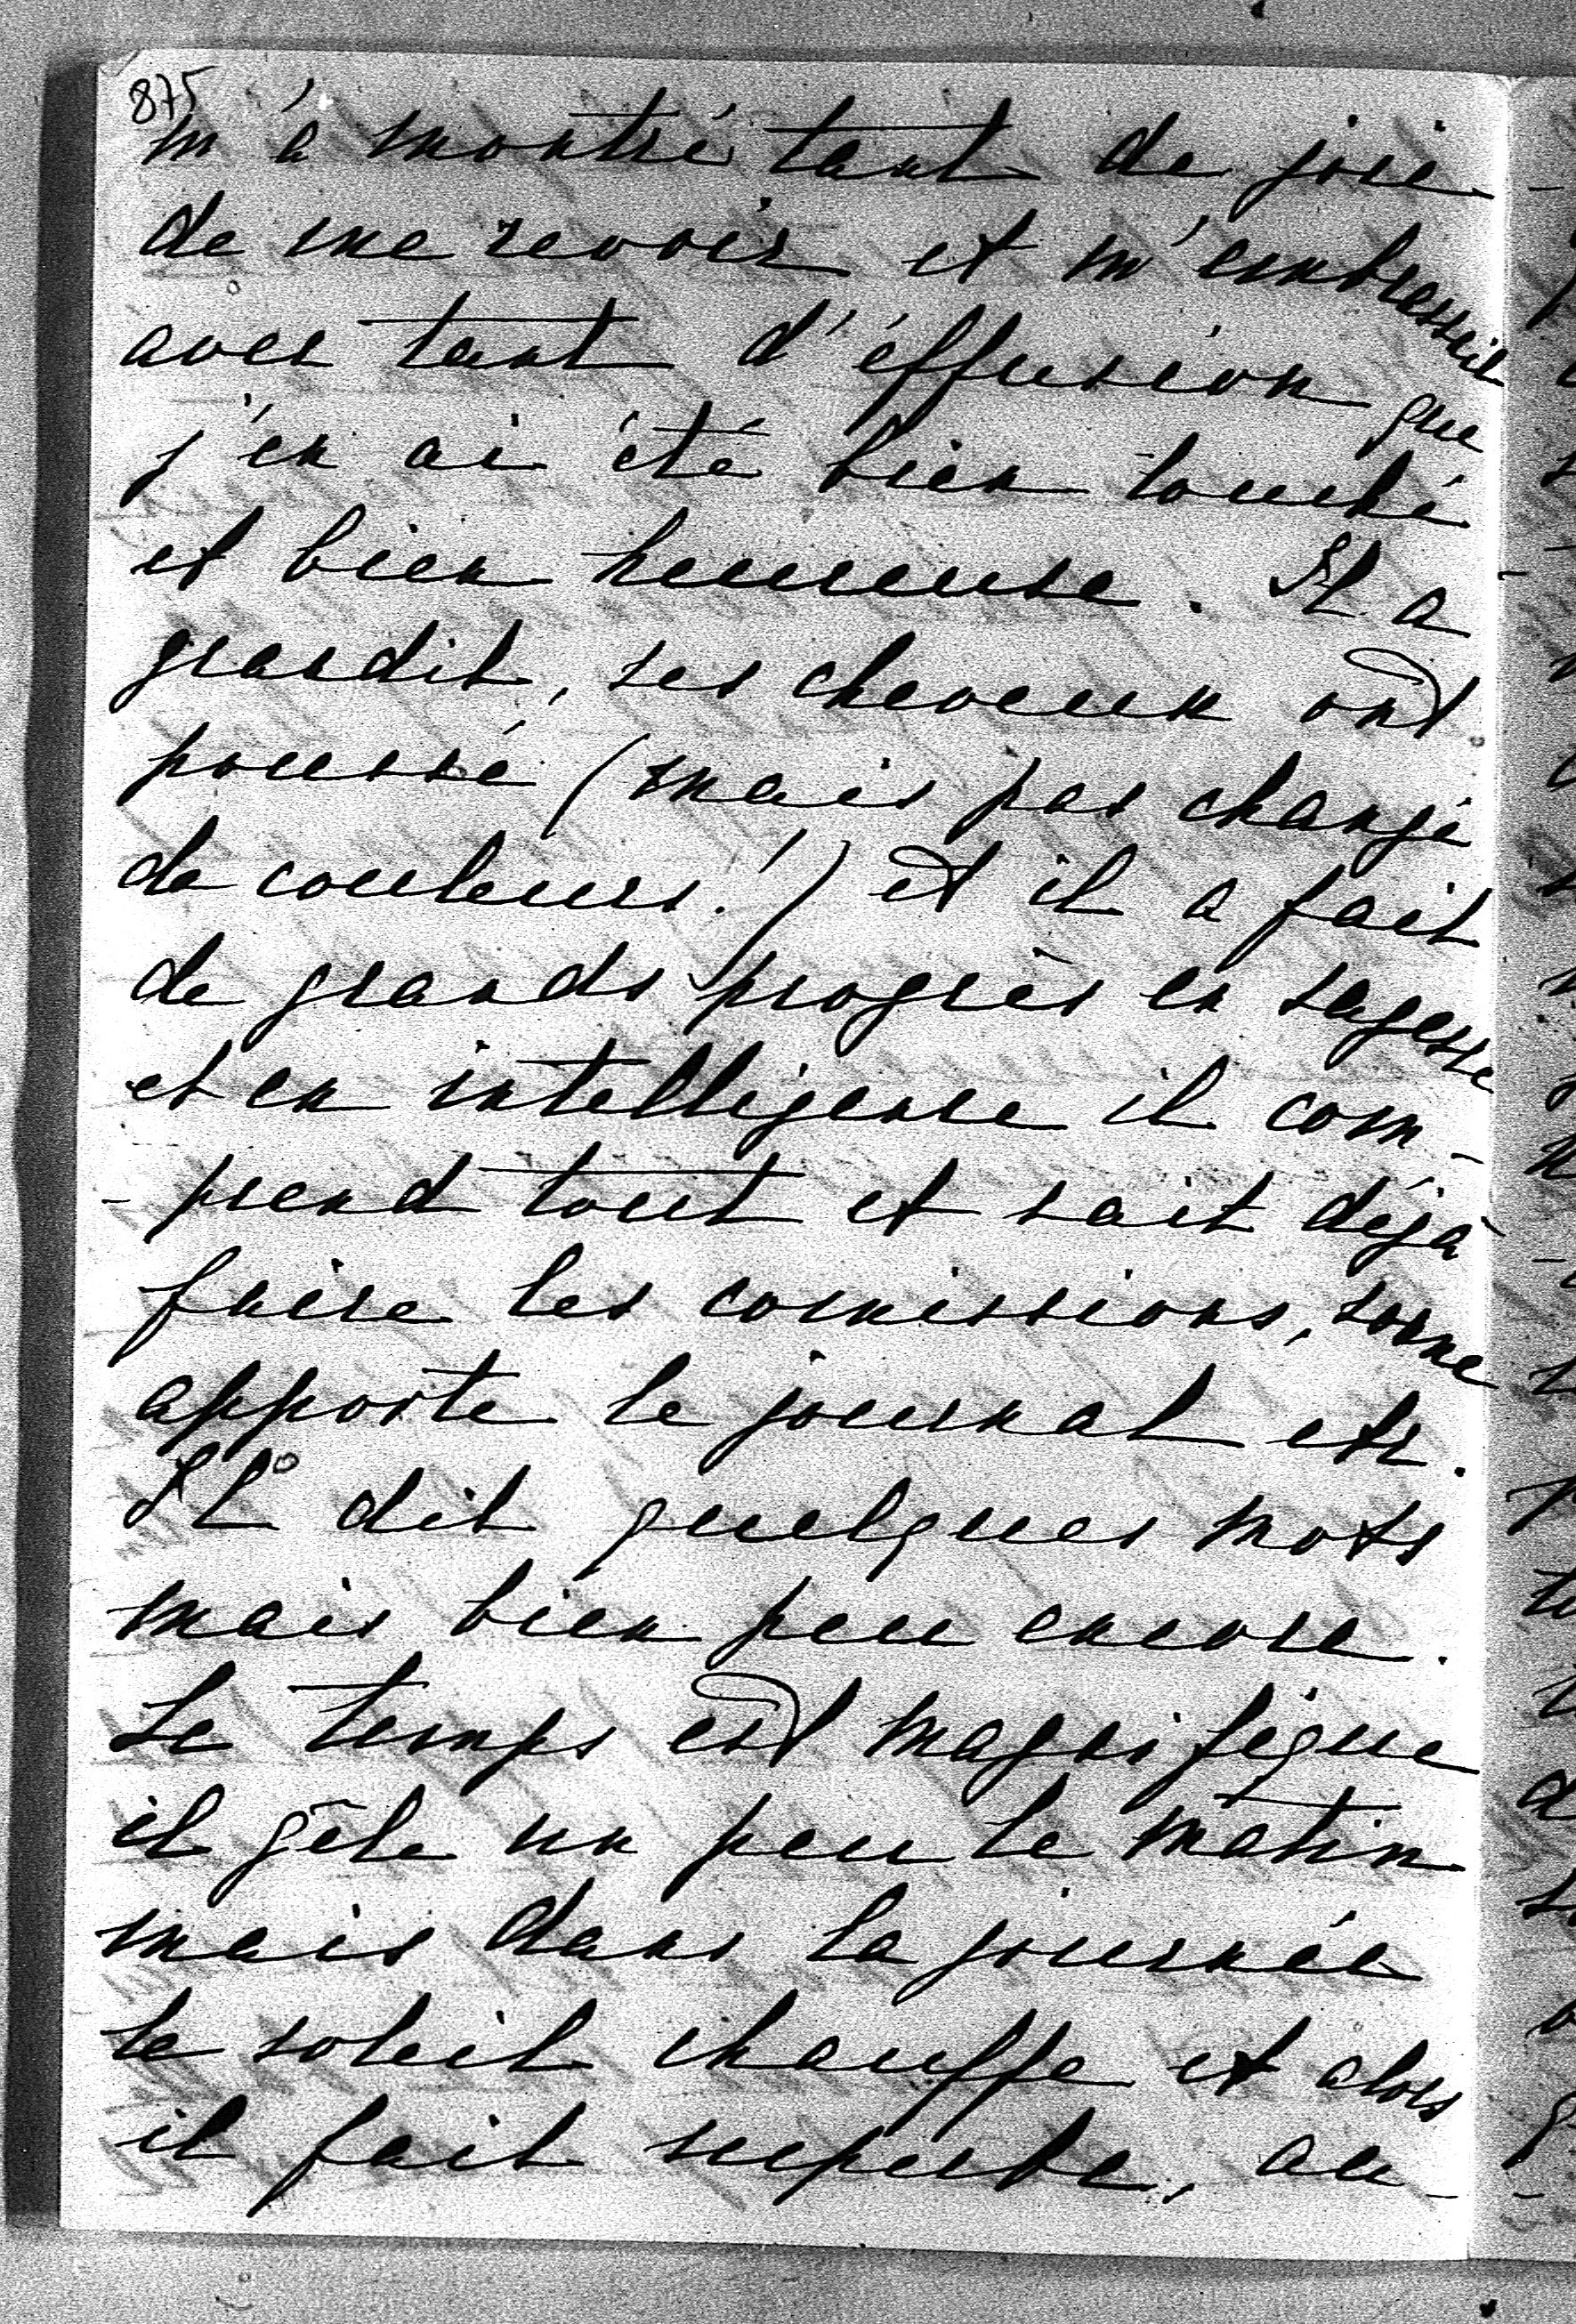 875
m'a montré tant de joie
de me revoir et m'embrassait
avec tant d'éffusion que
j'en ai été bien touché
et bien heureuse. Il a
grandit, ses cheveux ont
poussé (mais pas changé
de couleurs!) et il a fait
de grands progrès en sagesse
et en intelligence il com-
-prend tout et sait déjà
faire les comissions, sonne
apporte le journal etc.
Il dit quelques mots
mais bien peu encore.
Le temps est magnifique
il gêle un peu le matin
mais dans la journée
le soleil chauffe et alors
il fait superbe, au-